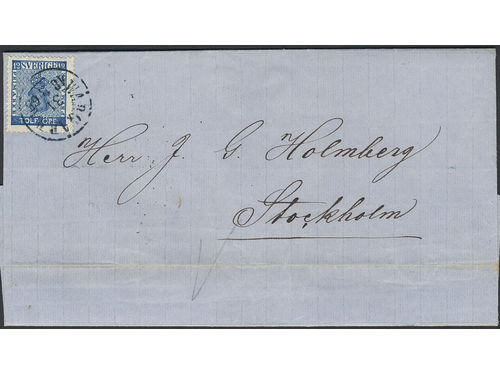 12 SVERIGE 12
TOLF ÖRE
Herr J. G. Holmberg
Stockholm